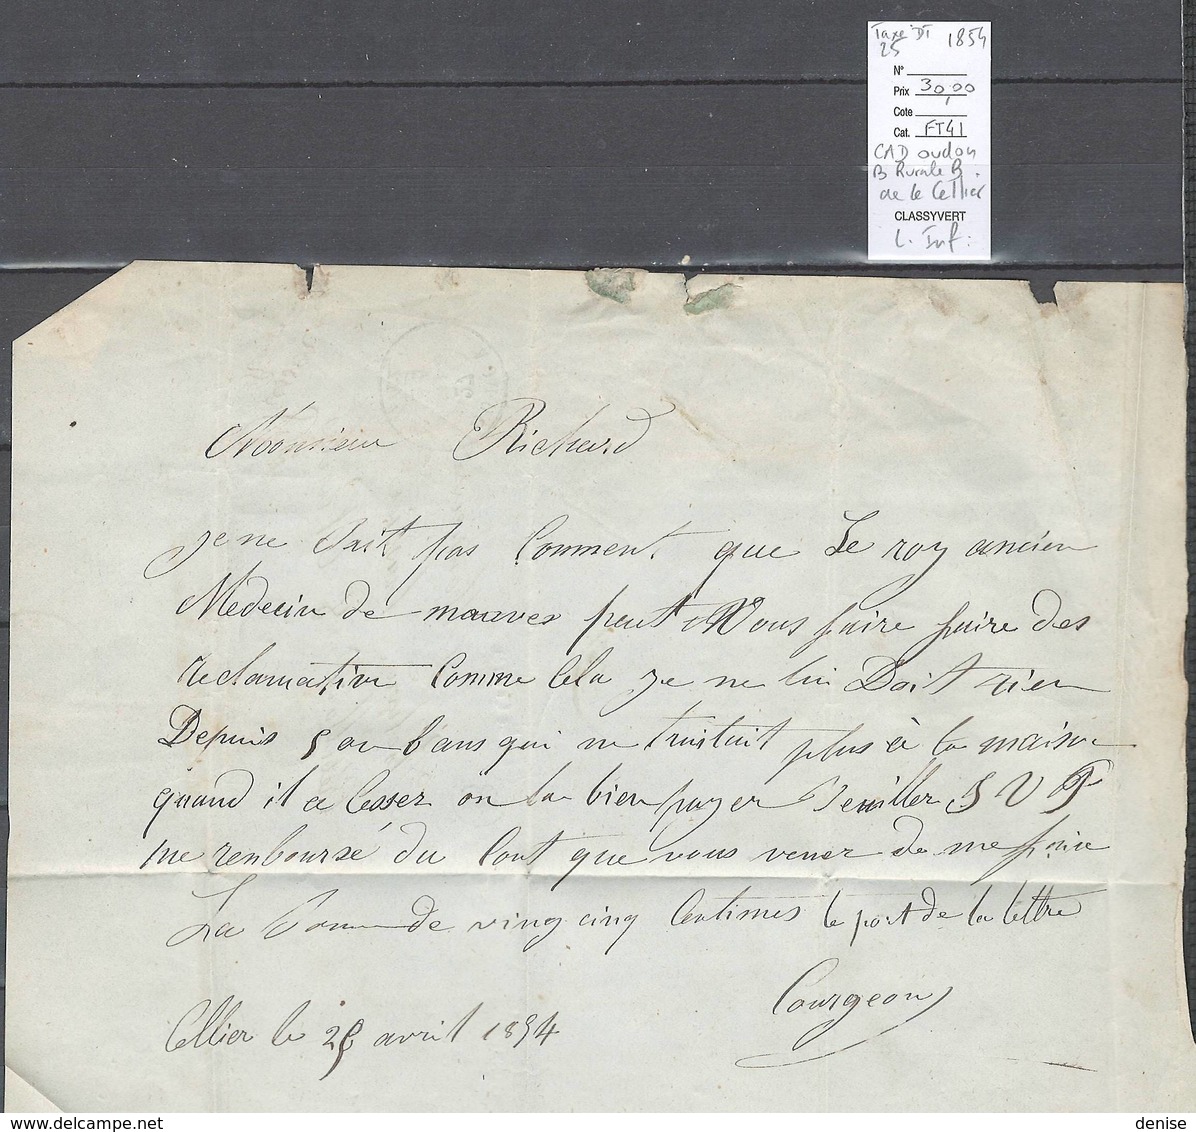 Taxe DT 1854
25
N°
Prix 30,00
Cote
Cat. FT41
CAD oudon
B Rurale B
de le Cellier
CLASSYVERT
L. Inf.
Monsieur Richard
je ne sait pas Comment que Le roy ancien
Médecin de mauves peut Vous faire faire des
reclamation Comme Cela je ne lui Doit rien
Depuis 5 ou 6 ans qui ne traitait plus à la maison
quand il a Cesser on la bien payer Veuiller S V P
me remboursé du Cout que vous vener de me faire
La Somme de ving cinq Centimes le port de la lettre
Courgeon
Cellier le 25 avril 1854
denise